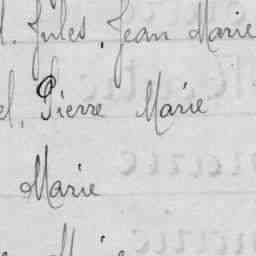 l. Jules, Jean Marie
el, Pierre Marie
Marie